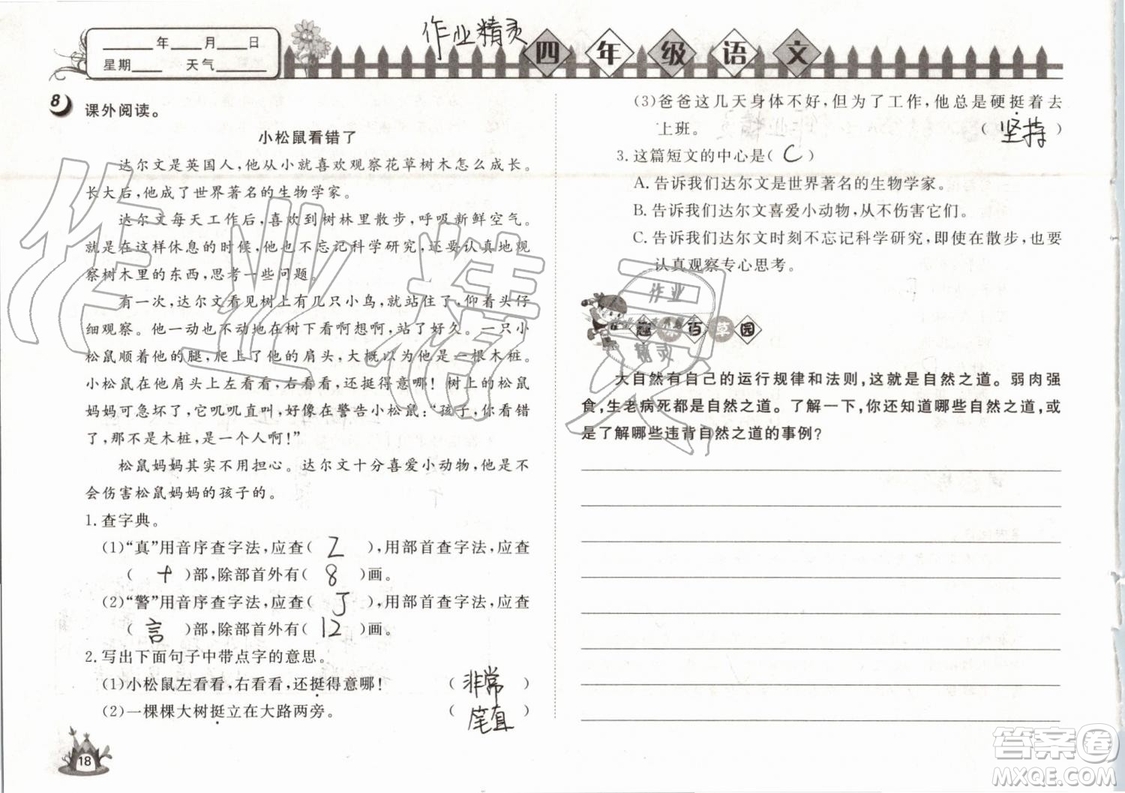 ____年____月____日
星期____ 天气____
作业精灵
四年级语文
8 课外阅读。
小松鼠看错了
达尔文是英国人，他从小就喜欢观察花草树木怎么成长。
长大后，他成了世界著名的生物学家。
达尔文每天工作后，喜欢到树林里散步，呼吸新鲜空气。
就是在这样休息的时候，他也不忘记科学研究，还要认真地观
察树木里的东西，思考一些问题。
有一次，达尔文看见树上有几只小鸟，就站着抬着头仔
细观察。为了不影响小鸟，他站了好久。一只小
松鼠看见他的腿，爬上了他的肩头，大概以为他是一根木桩。
小松鼠左看看，右看看，还挺得意哪！树上的松鼠
妈妈可害怕了，它叽叽直叫，好像在警告小松鼠：“孩子，你看错
了，那不是木桩，是一个人啊！”
松鼠妈妈其实不用担心。达尔文十分喜爱小动物，他是不
会伤害松鼠妈妈的孩子的。
1.查字典。
(1)“真”用音序查字法，应查( Z )，用部首查字法，应查
( 十 )部，除部首外有( 8 )画。
(2)“警”用音序查字法，应查( J )，用部首查字法，应查
( 言 )部，除部首外有( 12 )画。
2.写出下面句子中带点字的意思。
(1)小松鼠左看看，右看看，还挺得意哪！ ( 非常 )
(2)一棵棵大树挺立在大路两旁。 ( 笔直 )
18
(3)爸爸这几天身体不好，但为了工作，他总是硬挺着去
上班。 ( 坚持 )
3.这篇短文的中心是( C )
A.告诉我们达尔文是世界著名的生物学家。
B.告诉我们达尔文喜爱小动物，从不伤害它们。
C.告诉我们达尔文时刻不忘记科学研究，即使在散步，也要
认真观察专心思考。
百草园
大自然有自己的运行规律和法则，这就是自然之道。弱肉强
食，生老病死都是自然之道。了解一下，你还知道哪些自然之道，或
是了解哪些违背自然之道的事例？
作业精灵
作业
精灵
答案圈
MXQE.COM